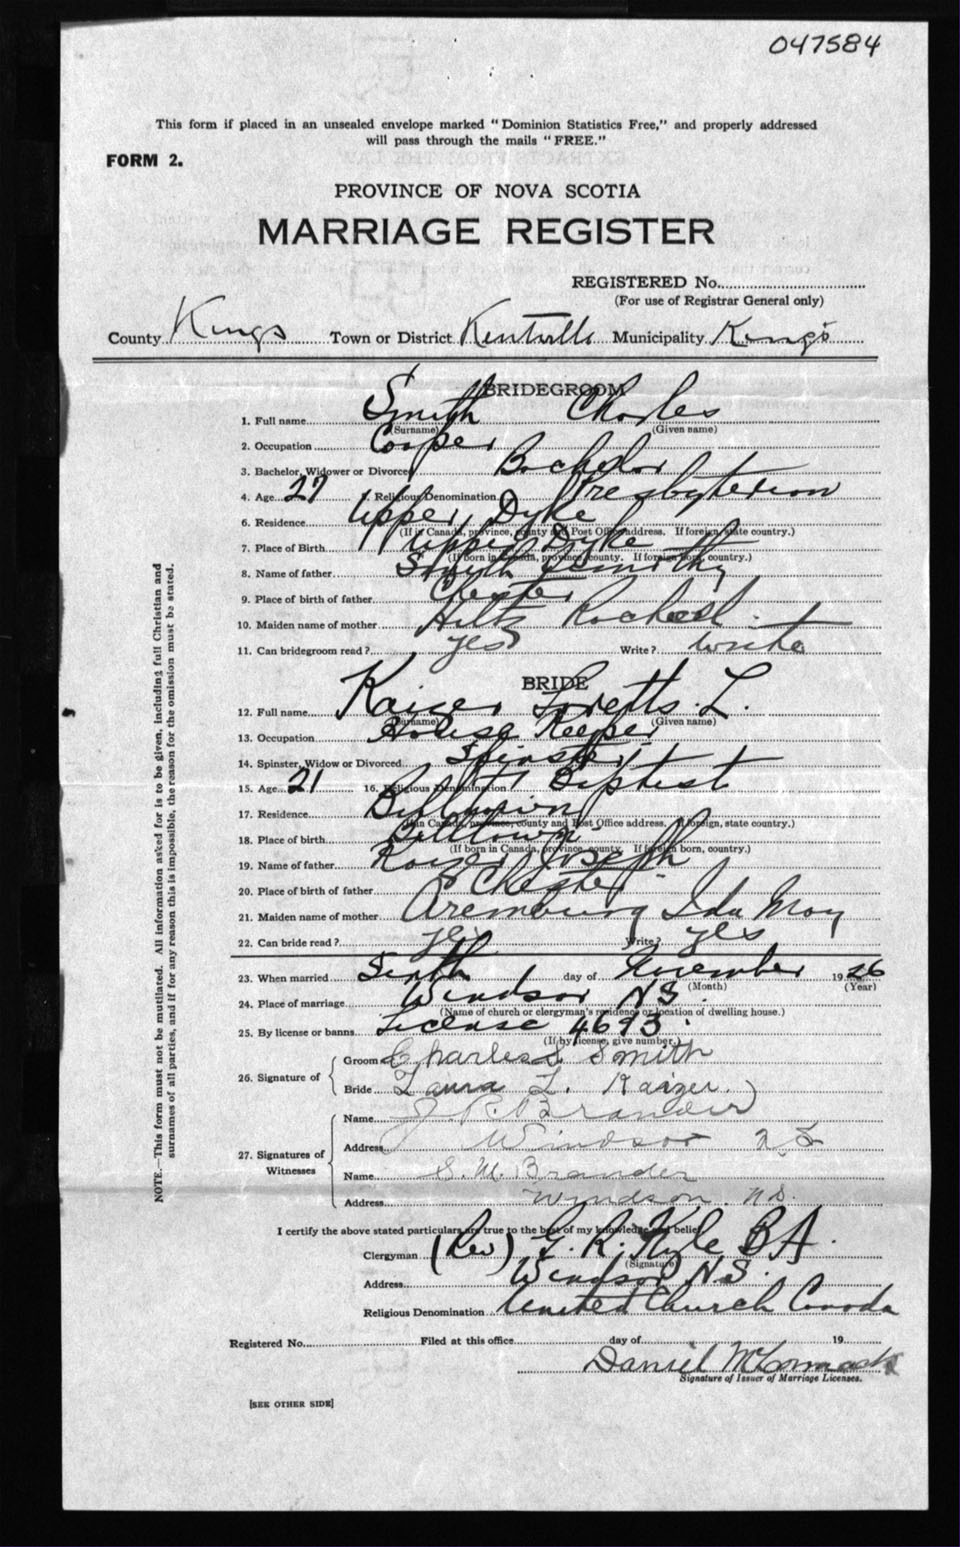 047584
This form if placed in an unsealed envelope marked "Dominion Statistics Free," and properly addressed
will pass through the mails "FREE."
FORM 2.
PROVINCE OF NOVA SCOTIA
MARRIAGE REGISTER
REGISTERED No.
(For use of Registrar General only)
County Kings Town or District Kentville Municipality Kings
BRIDEGROOM
1. Full name Smith Charles
(Surname) (Given name)
2. Occupation Cooper
3. Bachelor, Widower or Divorced Bachelor
4. Age 27 5. Religious Denomination Presbyterian
6. Residence Upper Dyke
(If in Canada, province, county and Post Office address. If foreign, state country.)
7. Place of Birth Upper Dyke
(If born in Canada, province, county. If foreign born, country.)
8. Name of father Smith Timothy
9. Place of birth of father Chester
10. Maiden name of mother Hiltz Rachael
11. Can bridegroom read? yes Write? write
BRIDE
12. Full name Kaizer L.
(Surname) (Given name)
13. Occupation House Keeper
14. Spinster, Widow or Divorced Spinster
15. Age 21 16. Religious Denomination Baptist
17. Residence Billtown
(If in Canada, province, county and Post Office address. If foreign, state country.)
18. Place of birth Billtown
(If born in Canada, province, county. If foreign born, country.)
19. Name of father Kaizer Joseph
20. Place of birth of father Chester
21. Maiden name of mother Aremburg Ida May
22. Can bride read? yes Write? yes
23. When married day of November 1926
(Month) (Year)
24. Place of marriage Windsor NS.
(Name of church or clergyman's residence or location of dwelling house.)
25. By license or banns License 4693
(If by license, give number.)
26. Signature of
Groom Charles S Smith
Bride Laura L. Kaizer
27. Signatures of Witnesses
Name J. R. Brander
Address Windsor N S
Name S. M. Brander
Address Windsor N.S.
I certify the above stated particulars are true to the best of my knowledge and belief.
Clergyman (Rev) G. R. Kyle BA.
(Signature)
Address Windsor NS.
Religious Denomination United Church Canada
Registered No. Filed at this office day of 19
Daniel McCormack
Signature of Issuer of Marriage Licenses.
[SEE OTHER SIDE]
NOTE.—This form must not be mutilated. All information asked for is to be given, including full Christian and
surnames of all parties, and if for any reason this is impossible, the reason for the omission must be stated.